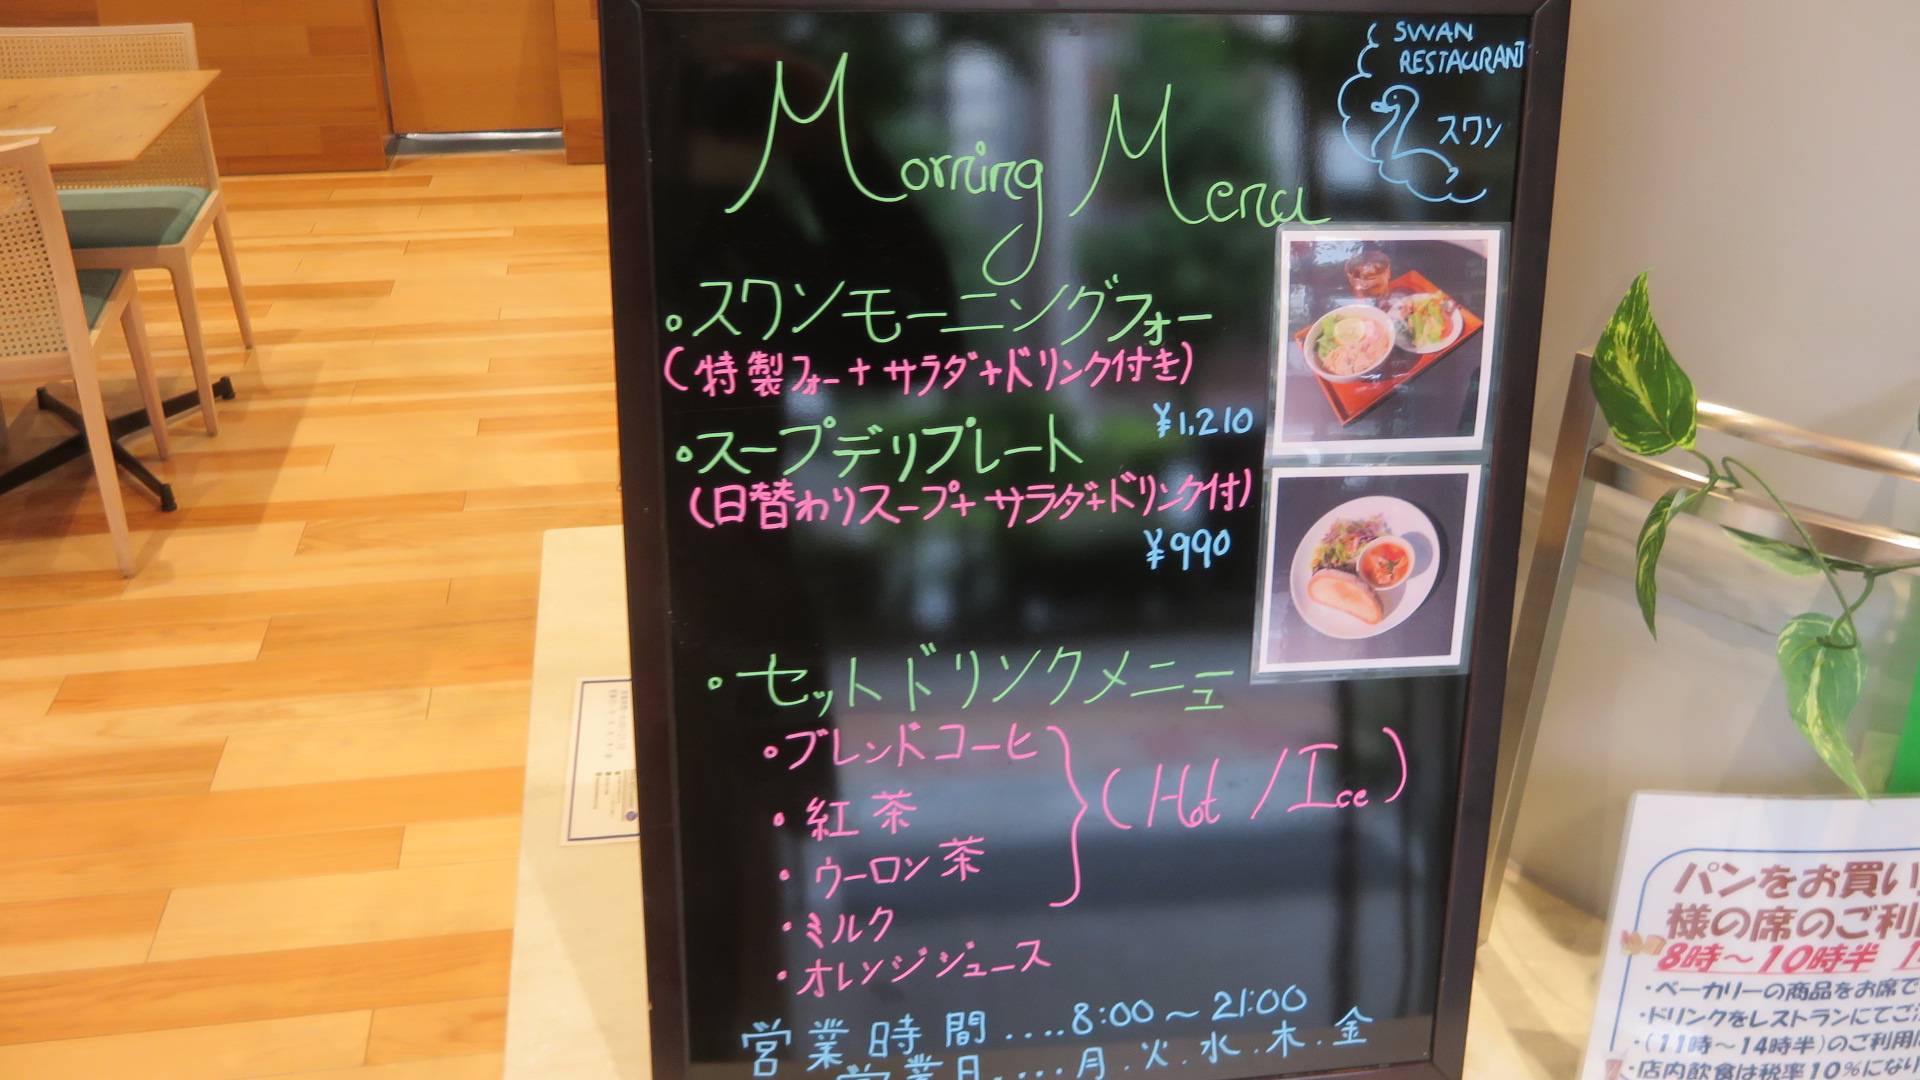 SWAN
RESTAURANT
スワン
Morning Menu
・スワンモーニングフォー
(特製フォー+サラダ+ドリンク付き)
¥1,210
・スープデリプレート
(日替わりスープ+サラダ+ドリンク付)
¥990
・セットドリンクメニュー
・ブレンドコーヒー
・紅茶
・ウーロン茶
(Hot/Ice)
・ミルク
・オレンジジュース
営業時間....8:00～21:00
営業日....月.火.水.木.金
パンをお買い
様の席のご利
8時～10時半
・ベーカリーの商品をお席で
・ドリンクをレストランにてご
・(11時～14時半)のご利用
・店内飲食は税率10%になり